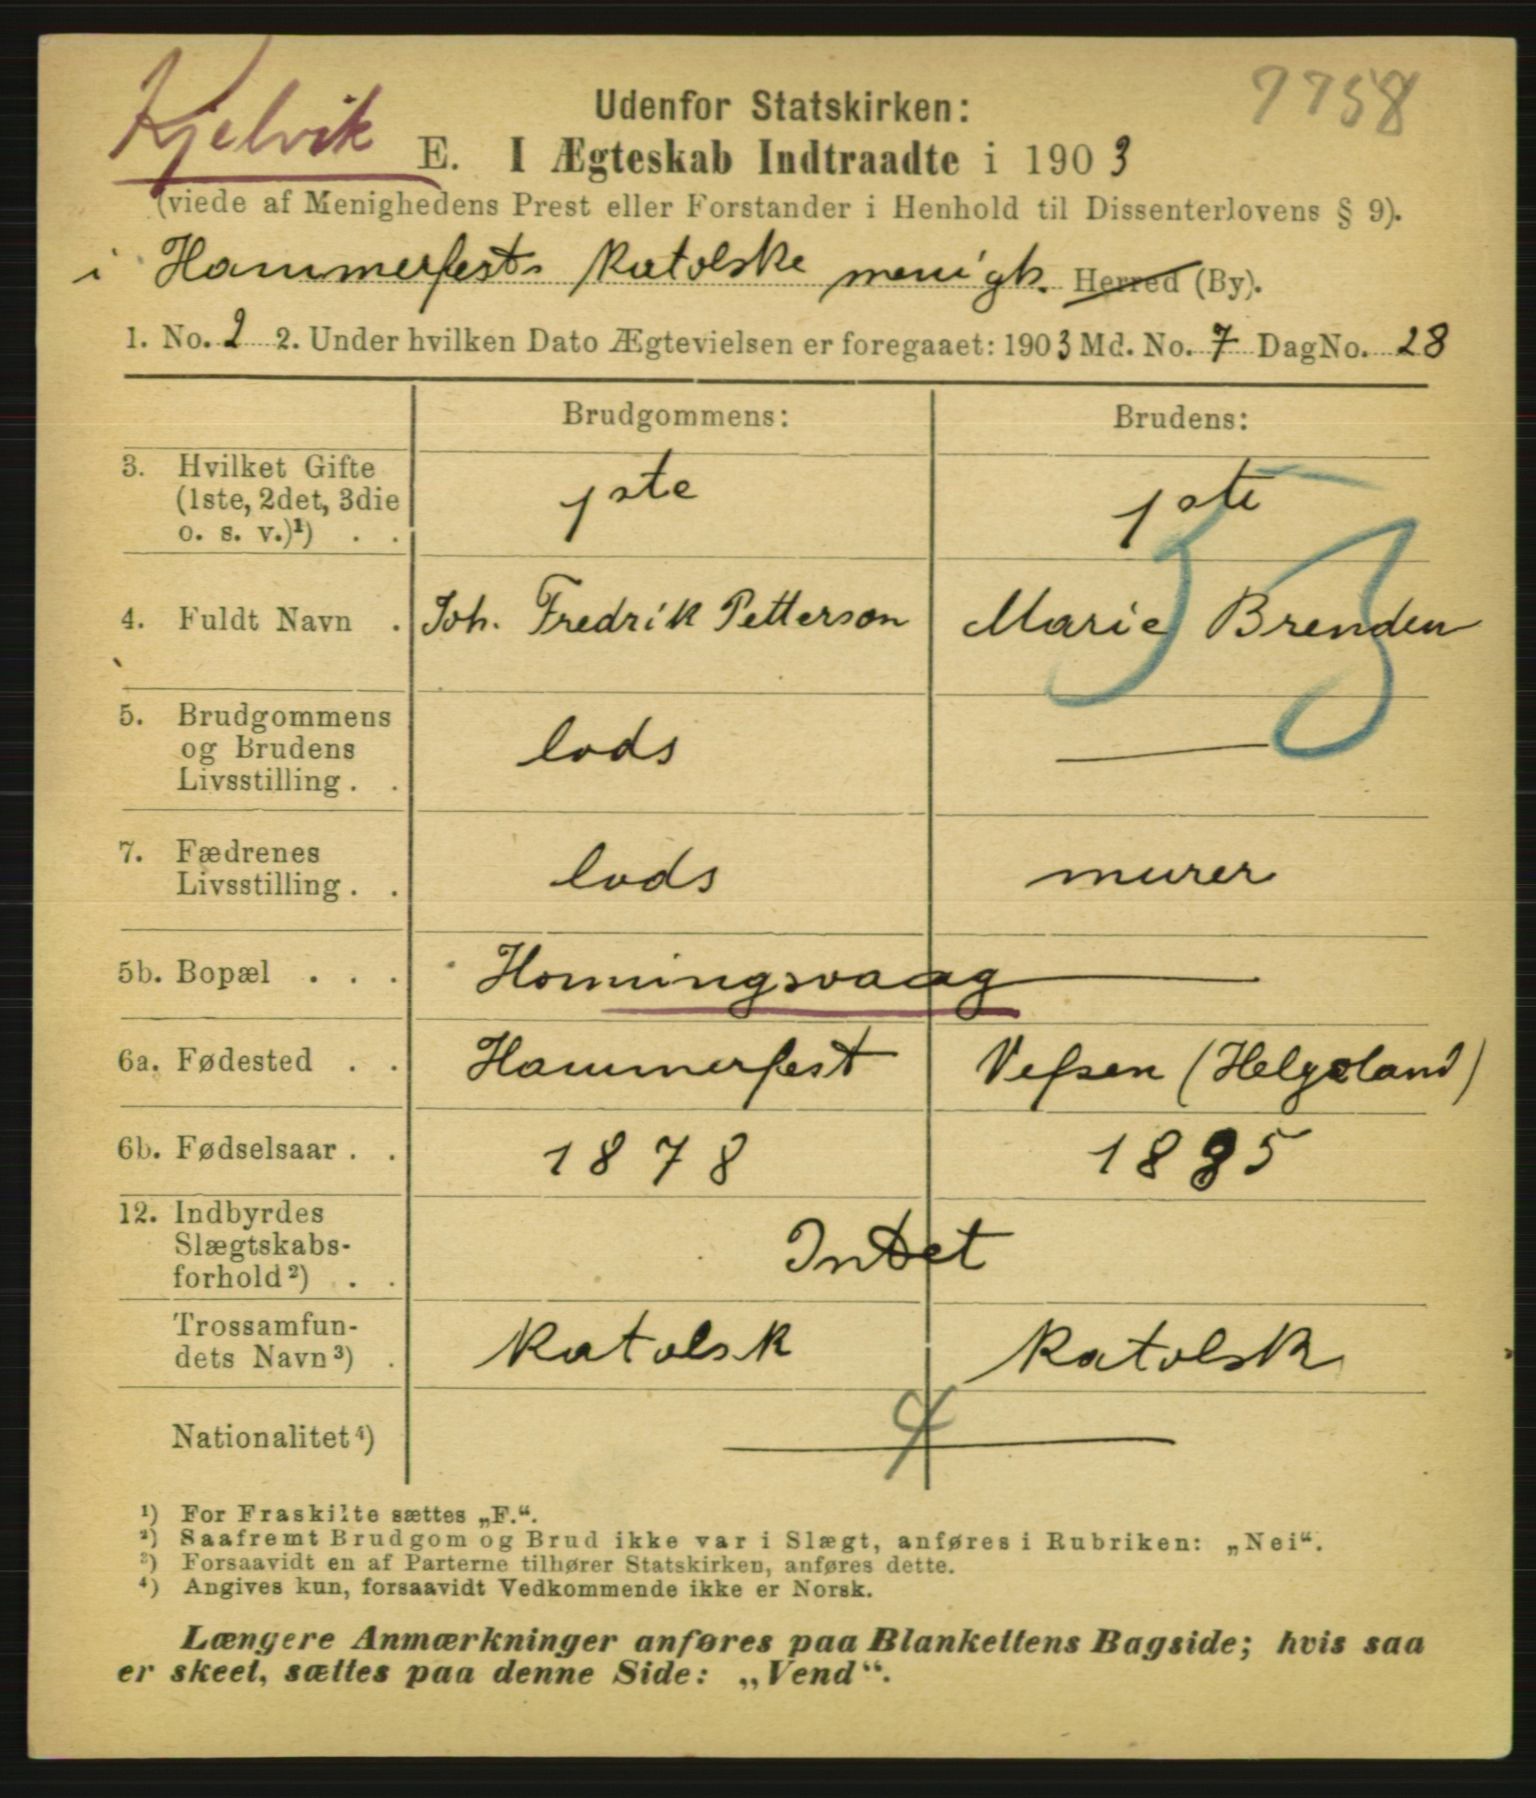 Kjelvik
7758
Udenfor Statskirken:
E. I Ægteskab Indtraadte i 1903
(viede af Menighedens Prest eller Forstander i Henhold til Dissenterlovens § 9).
i Hammerfests katolske menigh. Herred (By).
1. No. 2 2. Under hvilken Dato Ægtevielsen er foregaaet: 1903 Md. No. 7 Dag No. 28
Brudgommens: Brudens:
3. Hvilket Gifte
(1ste, 2det, 3die
o. s. v.)¹) . .
1ste 1ste
4. Fuldt Navn . Joh. Fredrik Petterson Marie Brenden
5. Brudgommens
og Brudens
Livsstilling . .
lods —
7. Fædrenes
Livsstilling . .
lods murer
5b. Bopæl . . . Honningsvaag —
6a. Fødested . . Hammerfest Vefsen (Helgeland)
6b. Fødselsaar . . 1878 1885
12. Indbyrdes
Slægtskabs-
forhold ²) . .
Intet
Trossamfun-
dets Navn ³) .
katolsk katolsk
Nationalitet ⁴) —
¹) For Fraskilte sættes „F.“.
²) Saafremt Brudgom og Brud ikke var i Slægt, anføres i Rubriken: „Nei“.
³) Forsaavidt en af Parterne tilhører Statskirken, anføres dette.
⁴) Angives kun, forsaavidt Vedkommende ikke er Norsk.
Længere Anmærkninger anføres paa Blankettens Bagside; hvis saa
er skeet, sættes paa denne Side: „Vend“.